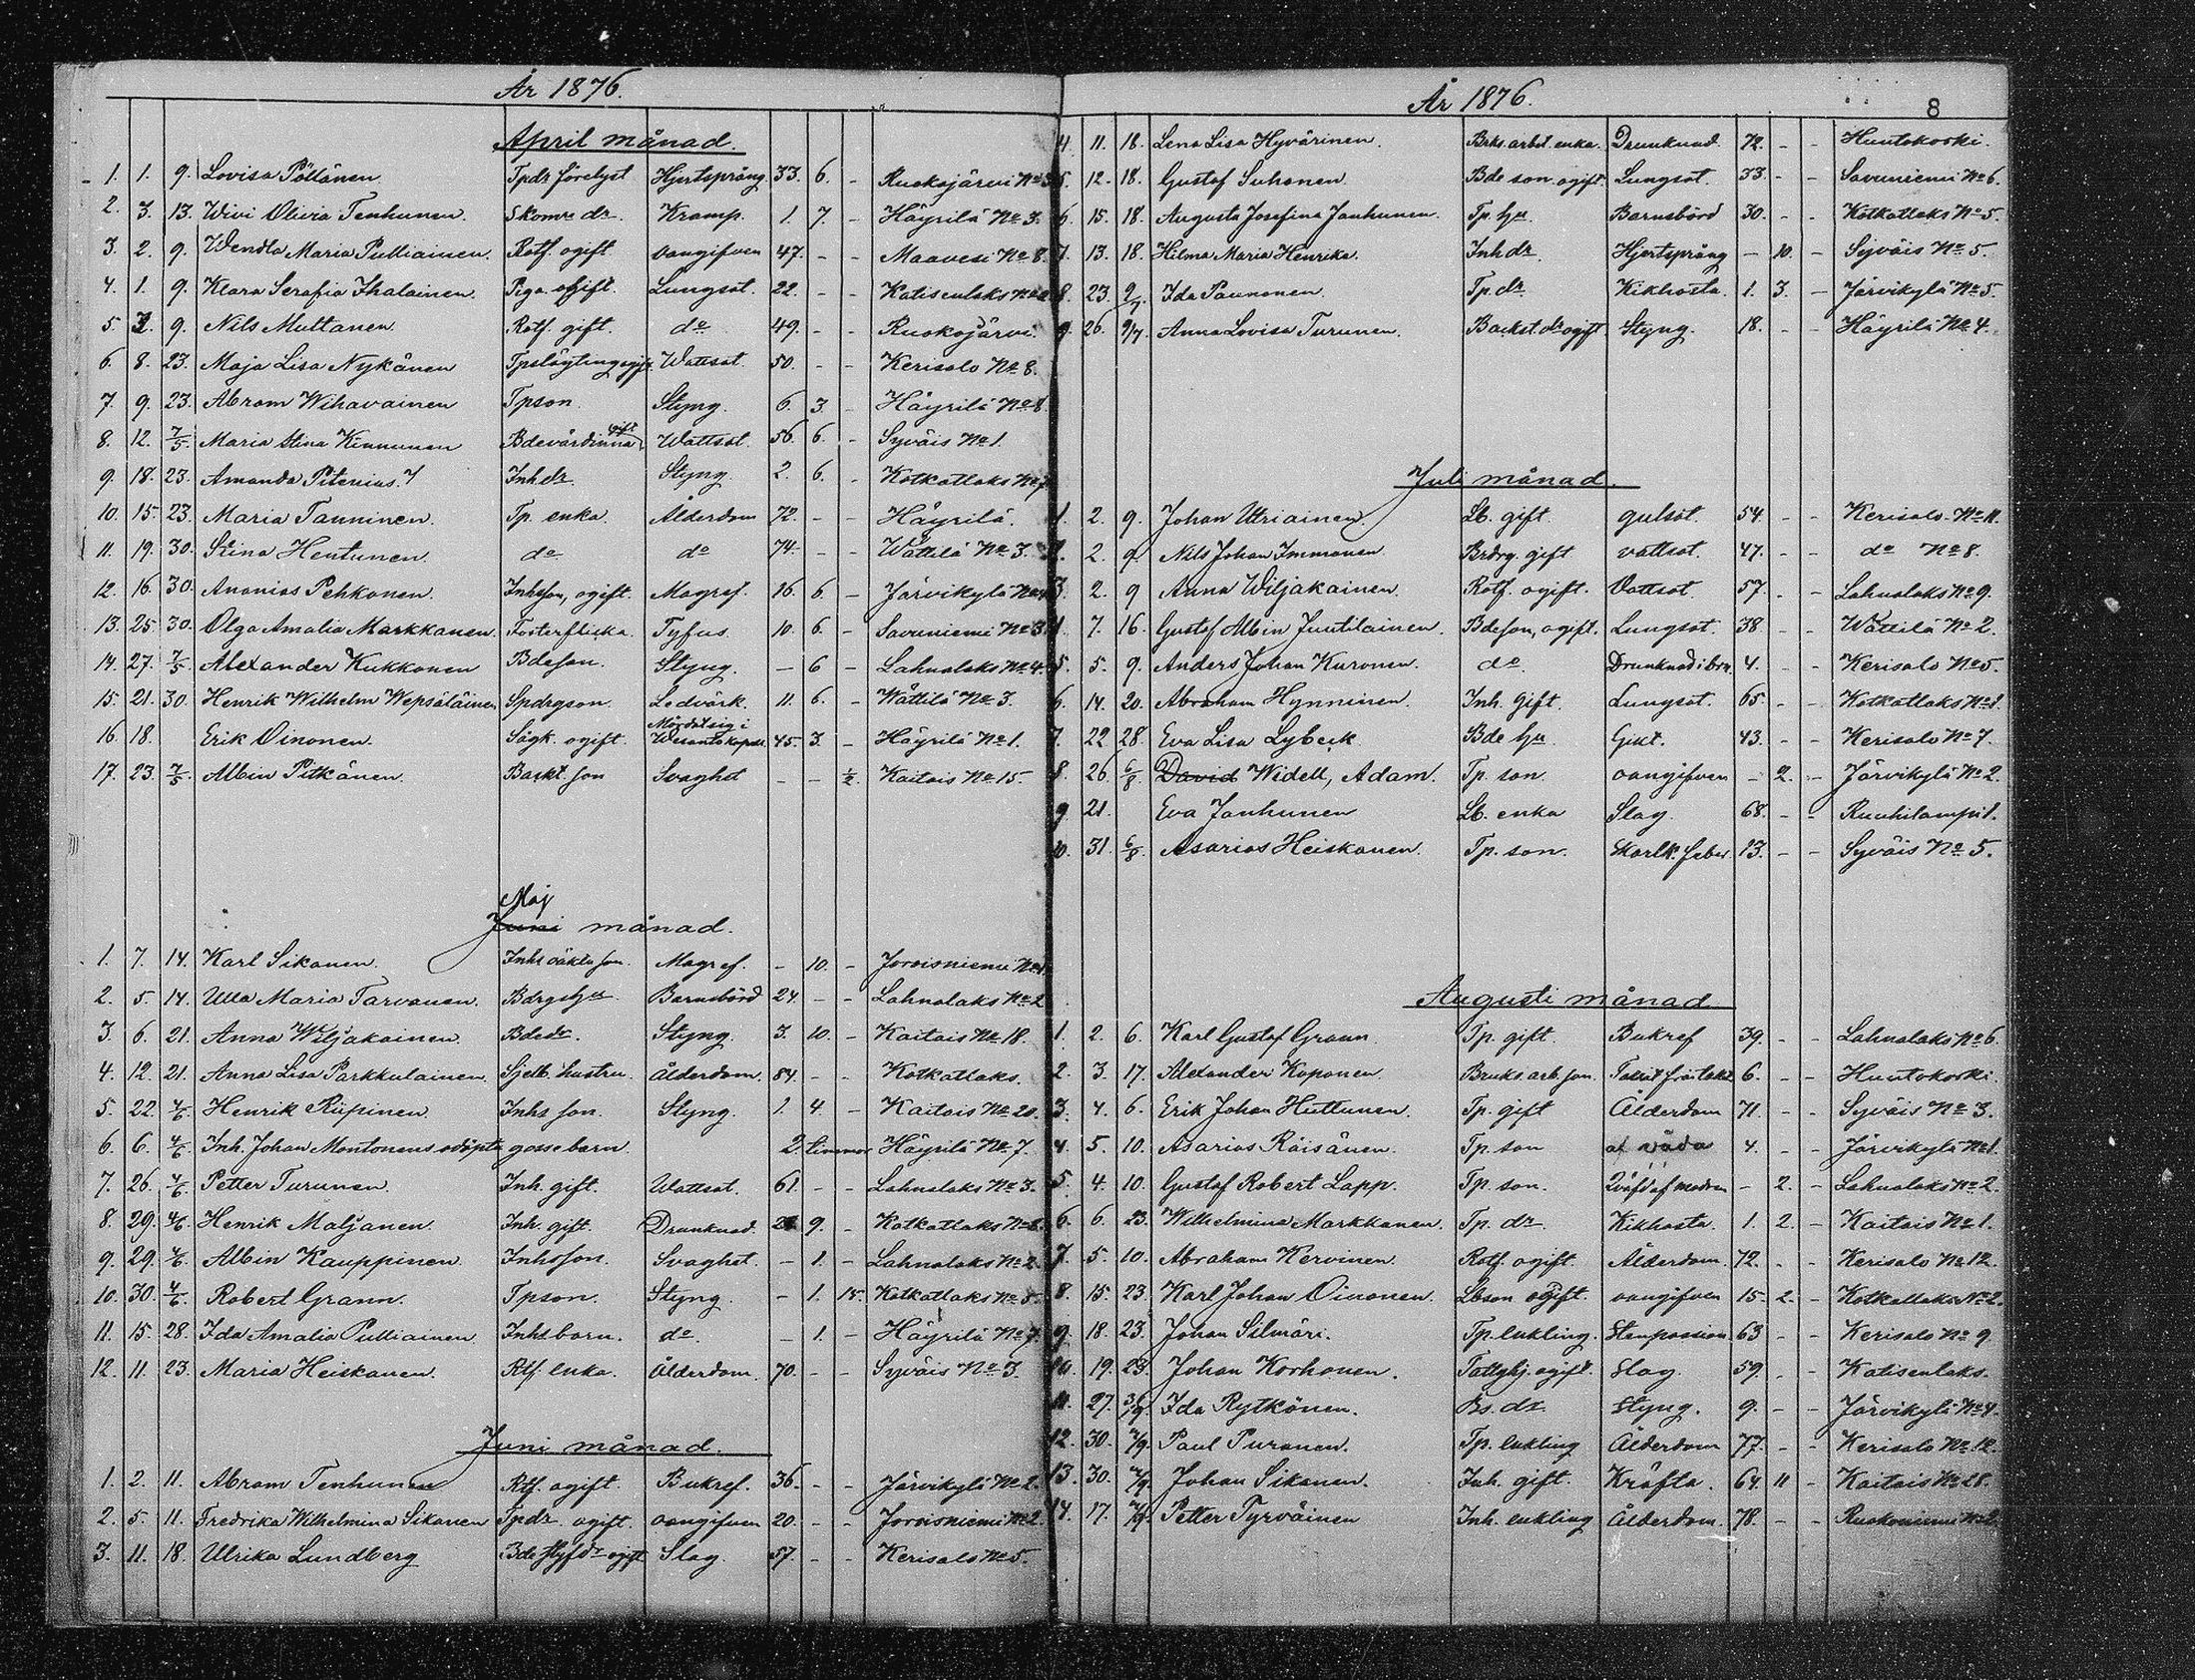 År 1876.
April månad.
1. 1. 9. Lovisa Pöllänen Tpdr förelyst Hjertspräng 33. 6. - Ruokojärvi No
2. 3. 13. Wivi Olivia Tenhunen. Skomrs dr Kramp. 1. 7. - Häyrilä No 3.
3. 2. 9. Wendla Maria Pulliainen. Rotf. ogift oangifven 47. - - Maavesi No 8.
4. 1. 9. Klara Serafia Ihalainen. Piga ogift. Lungsot. 22. - - Katisenlaks No
5. 9. Nils Muttanen Rotf. gift. do 49. - - Ruokojärvi.
6. 8. 23. Maja Lisa Nykänen Wattsot. 50. - - Kerisalo No 8.
7. 9. 23. Abram Wihavainen Tpson. Styng. 6. 3. - Häyrilä No 8.
8. 12. 7/5 Maria Stina Kinnunen Bdevärdinna gift Wattsot. 56. 6. - Syväis No 1.
9. 18. 23. Amanda Pitenius. Inhdr Styng. 2. 6. - Kotkatlaks No 7
10. 15. 23. Maria Tanninen. Tp. enka. Ålderdom 72. - - Häyrilä.
11. 19. 30. Stina Hentunen. do do 74. - - Wättilä No 3.
12. 16. 30. Ananias Pehkonen. Inhson, ogift. Magref. 16. 6. - Järvikylä No
13. 25. 30. Olga Amalia Markkanen. Fosterflicka. Tyfus. 10. 6. - Savuniemi No 3.
14. 27. 7/5 Alexander Kukkonen Bdeson. Styng. - 6 - Lahnalaks No 4.
15. 21. 30. Henrik Wilhelm Wepsäläinen Spdrgson. Ledvärk. 11. 6. - Wättilä No 3.
16. 18. Erik Oinonen. Sågk. ogift. Mördat sig i 45. 3. - Häyrilä No 1.
17. 23. 7/5 Albin Pitkänen. Backst. son Svaghet - - 1/2 Kaitais No 15.
Maj
Juni månad.
1. 7. 14. Karl Sikanen. Inhs oäkta son. Magref. - 10. - Joroisniemi No 1.
2. 5. 14. Ulla Maria Tarvanen. Bdrgshu Barnsbörd 24. - - Lahnalaks No 2
3. 6. 21. Anna Wiljakainen. Bdedr. Styng. 3. 10. - Kaitais No 18.
4. 12. 21. Anna Lisa Parkkulainen. Sjelb. hustru Ålderdom. 84. - - Kotkatlaks.
5. 22. 4/6 Henrik Riipinen. Inhs son. Styng. 1. 4. - Kaitais No 20.
6. 6. 4/6 Inh. Johan Montonens odöpta gossebarn. 2. timmar Häyrilä No 7.
7. 26. 4/6 Petter Turunen. Inh. gift. Wattsot. 61. - - Lahnalaks No 3.
8. 29. 4/6 Henrik Maljanen. Inh. gift. Drunknad. 9. - Kotkatlaks No
9. 29. 4/6 Albin Kauppinen. Inhsson. Svaghet. - 1. - Lahnalaks No 2.
10. 30. 4/6 Robert Grann. Tpson. Styng. - 1. 15. Kotkatlaks No 5.
11. 15. 28. Ida Amalia Pulliainen Inhsbarn. do. - 1. - Häyrilä No 7.
12. 11. 23. Maria Heiskanen. Rtf. enka. Ålderdom. 70. - - Syväis No 3.
Juni månad.
1. 2. 11. Abram Tenhunen Rtf. ogift. Bukref. 36. - - Järvikylä No 2.
2. 5. 11. Fredrika Wilhelmina Sikanen Tpdr ogift. oangifven 20. - - Joroisniemi No 2.
3. 11. 18. Ulrika Lundberg Bde styfdr ogift Slag. 57. - - Kerisalo No 5.
År 1876. 8
4. 11. 18. Lena Lisa Hyvärinen. Brks. arbet. enka. Drunknad. 72. - - Huutokoski.
5. 12. 18. Gustaf Suhonen. Bde son. ogift. Lungsot. 33. - - Savuniemi No 6.
6. 15. 18. Augusta Josefina Janhunen. Tp. hu. Barnsbörd 30. - - Kotkatlaks No 5.
7. 13. 18. Hilma Maria Henrika. Inhdr. Hjertspräng - 10. - Syväis No 5.
8. 23. 2/7 Ida Paunonen. Tp. dr. Kikhosta. 1. 3. - Järvikylä No 5.
9. 26. 9/7 Anna Lovisa Turunen. Backst. dr ogift Styng. 18. - - Häyrilä No 4.
Juli månad.
1. 2. 9. Johan Utriainen. Lb. gift. gulsot. 54. - - Kerisalo No 11.
2. 2. 9. Nils Johan Immonen. Brdrg. gift vattsot. 47. - - do No 8.
3. 2. 9 Anna Wiljakainen. Rotf. ogift. Vattsot. 57. - - Lahnalaks No 9.
4. 7. 16. Gustaf Albin Juutilainen. Bdeson, ogift. Lungsot. 38 - - Wättilä No 2.
5. 5. 9. Anders Johan Kuronen. do Drunknad i brn 4. - - Kerisalo No 5.
6. 14. 20. Abraham Hynninen. Inh. gift. Lungsot. 65. - - Kotkatlaks No 1.
7. 22 28. Eva Lisa Lybeck Bde hu Gikt. 43. - - Kerisalo No 7.
8. 26. 6/8 David Widell, Adam. Tp. son oangifven - 2. - Järvikylä No 2.
9. 21. Eva Janhunen Lb. enka Slag. 68. - - Ruuhilampi 1.
10. 31. 6/8 Asarias Heiskanen. Tp. son. Skarlk. feber 13. - - Syväis No 5.
Augusti månad
1. 2. 6. Karl Gustaf Grann. Tp. gift. Bukref 39. - - Lahnalaks No 6.
2. 3. 17. Alexander Koponen. Bruks. arb. son. 6. - - Huutokoski.
3. 4. 6. Erik Johan Huttunen. Tp. gift Ålderdom 71. - - Syväis No 3.
4. 5. 10. Asarias Räisänen. Tp. son af våda 4. - - Järvikylä No 1.
5. 4. 10. Gustaf Robert Lapp. Tp. son. Qväfd af modren - 2. - Lahnalaks No 2.
6. 6. 23. Wilhelmina Markkanen. Tp. dr Kikhosta. 1. 2. - Kaitais No 1.
7. 5. 10. Abraham Kervinen. Rotf. ogift. Ålderdom. 72. - - Kerisalo No 12.
8. 15. 23. Karl Johan Oinonen. Lbson ogift. oangifven 15. 2. - Kotkatlaks No 2.
9. 18. 23. Johan Silmäri. Tp. enkling. Stenpassion 63 - - Kerisalo No 9.
10. 19. 23. Johan Korhonen. Fattghj. ogift. Slag. 59. - - Katisenlaks.
11. 27. Ida Rytkönen. Bs. dr. Styng. 9. - - Järvikylä No 4.
12. 30. Paul Puranen. Tp. enkling Ålderdom 77. - - Kerisalo No 12.
13. 30. Johan Sikanen. Inh. gift. Kräfta. 64. 11 - Kaitais No 28.
14. 17. Petter Tyrväinen Inh. enkling Ålderdom. 78. - - Ruokoniemi No 2